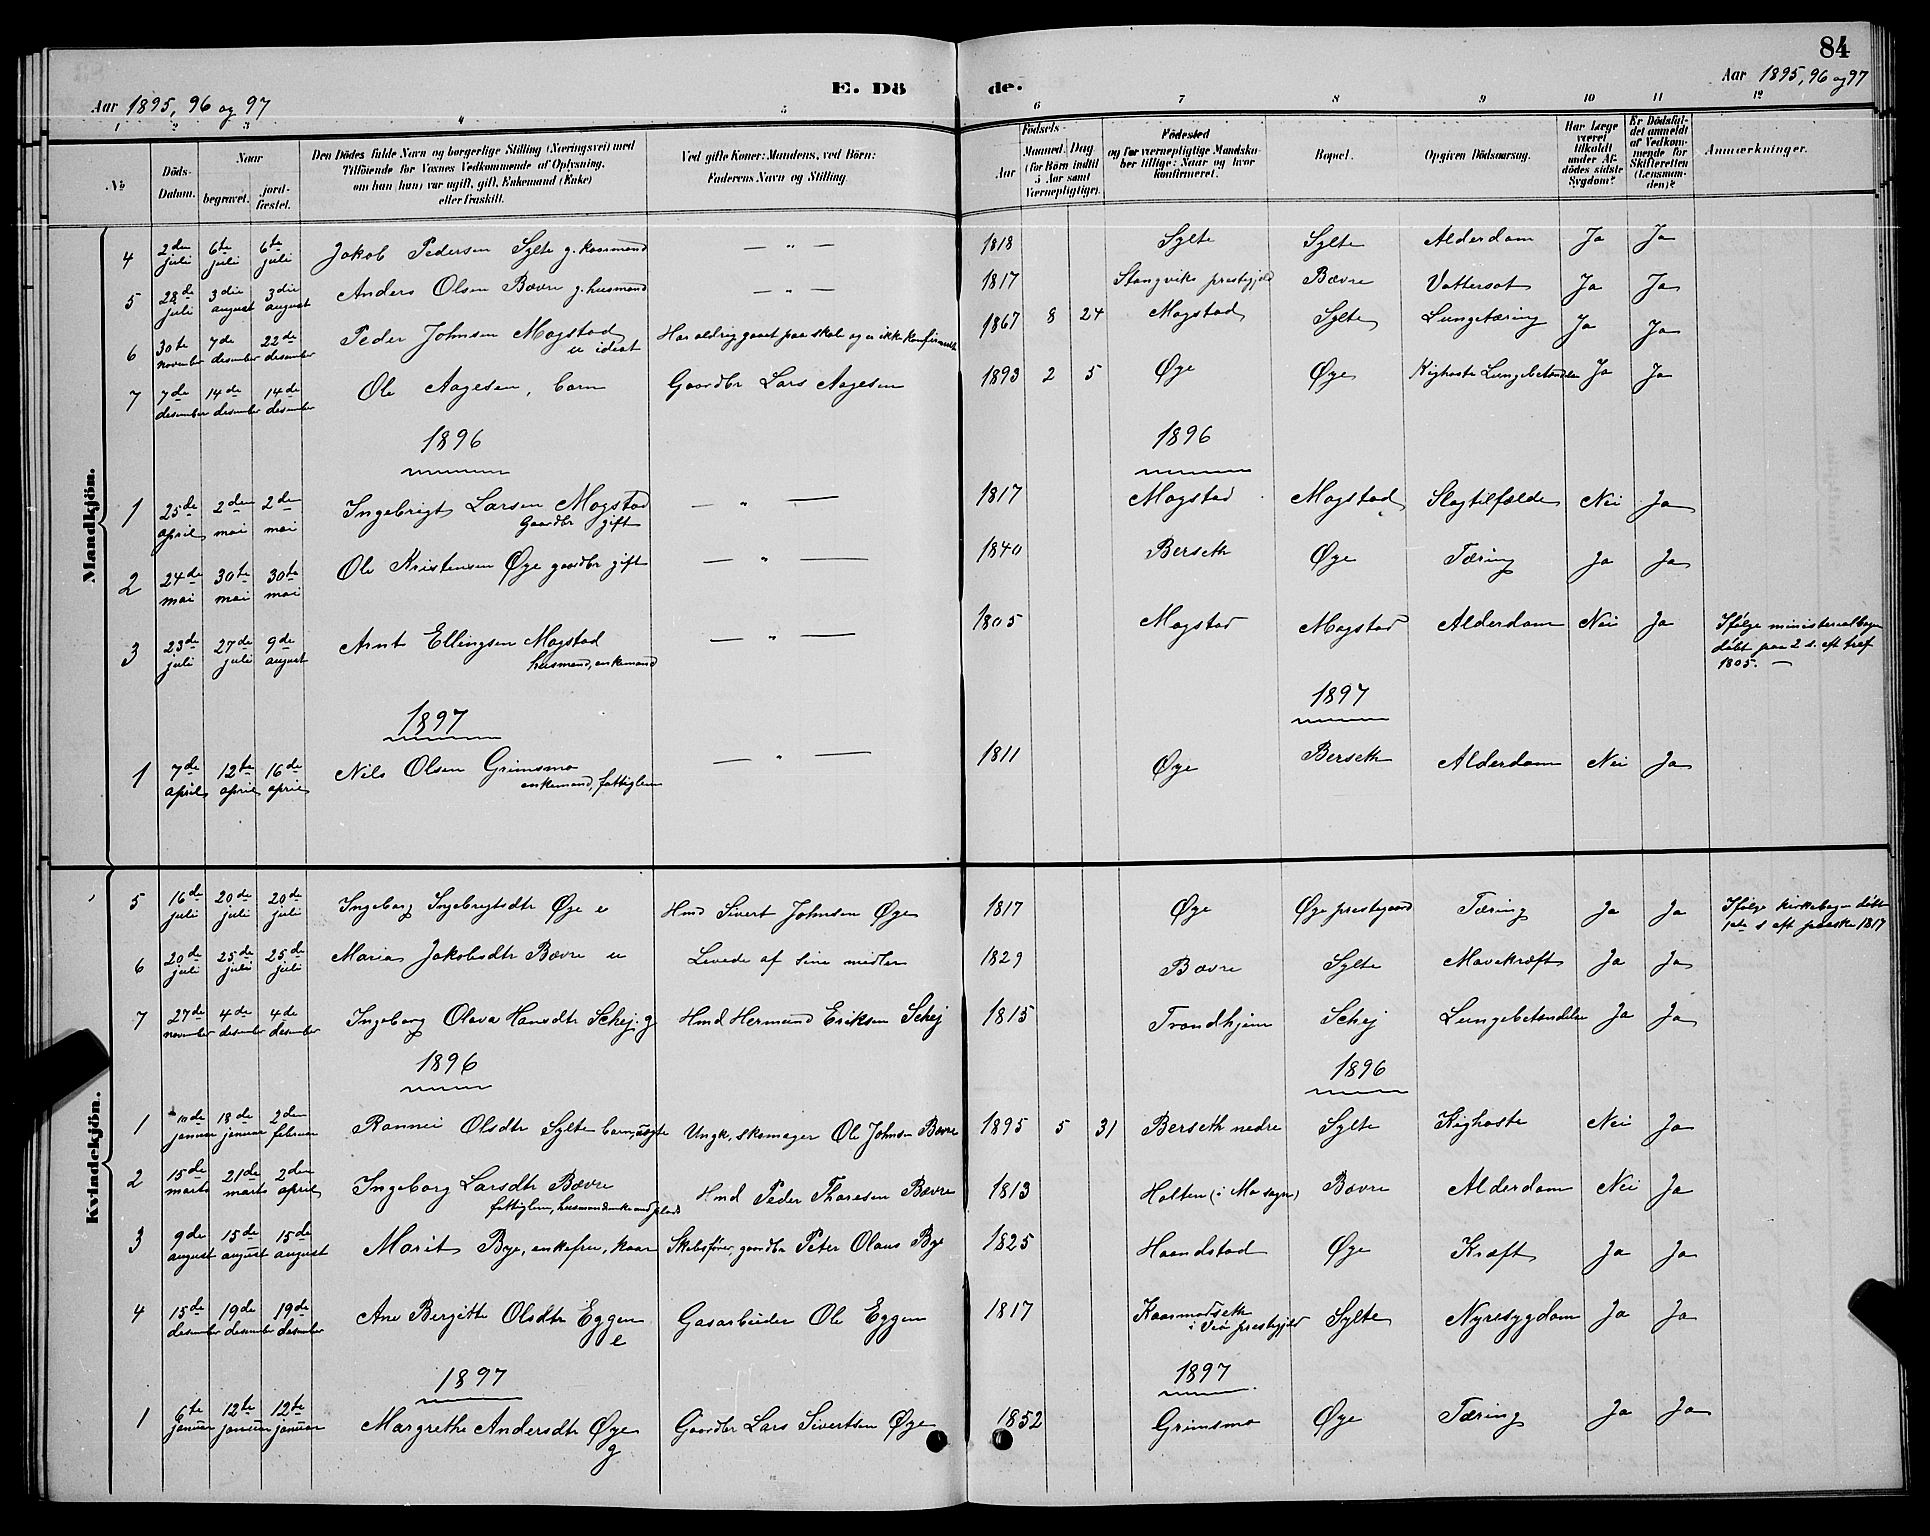 84
Aar 1895, 96 og 97
E. Dö
de.
Aar 1895, 96 og 97
1 2 3 4 5 6 7 8 9 10 11 12
No
Döds-Datum.
Naar
begravet.
jord-fæstet.
Den Dödes fulde Navn og borgerlige Stilling (Næringsvei) med
Tilföiende for Voxnes Vedkommende af Oplysning,
om han (hun) var ugift, gift, Enkemand (Enke)
eller fraskilt.
Ved gifte Koner: Mandens, ved Börn:
Faderens Navn og Stilling.
Födsels-
Aar
Maaned. Dag
(for Börn indtil
5 Aar samt
Værnepligtige).
Födested
og for værnepligtige Mandska-
ber tillige: Naar og hvor
konfirmeret.
Bopæl.
Opgiven Dödsaarsag.
Har Læge
været
tilkaldt
under Af-
dödes sidste
Sygdom?
Er Dödsfal-
det anmeldt
af Vedkom-
mende for
Skifteretten
(Lensman-
den)?
Anmærkninger.
Mandkjön.
4 2den juli 6te juli 6te juli Jakob Pedersen Sylte g. kaarmand — " — 1818 Sylte Sylte Alderdom Ja Ja
5 28de juli 3die august 3die august Anders Olsen Bævre g. husmand — " — 1817 Stangviks prestegjeld Bævre Vattersot Ja Ja
6 30te november 7de desember 22de desember Peder Johnsen Mogstad u idiot Har aldrig gaaet paa skole og er ikke konfirmeret 1867 8 24 Mogstad Sylte Lungetæring Ja Ja
7 7de desember 14de desember 14de desember Ole Aagesen, barn Gaardbr Lars Aagesen 1893 2 5 Øye Øye Kighoste Lungebetændelse Ja Ja
1896 1896
1 25de april 2den mai 2den mai Ingebrigt Larsen Mogstad Gaardbr gift — " — 1817 Mogstad Mogstad Slagtilfælde Nei Ja
2 24de mai 30te mai 30te mai Ole Kristensen Øye gaardbr gift — " — 1840 Berseth Øye Tæring Ja Ja
3 23de juli 27de juli 9de august Arnt Ellingsen Mogstad husmand, enkemand — " — 1805 Mogstad Mogstad Alderdom Nei Ja Ifølge ministerialbogen
døbt paa 2 s. eft tref
1805. —
1897 1897
1 7de april 12te april 16de april Nils Olsen Grimsmo enkemand, fattiglem — " — 1811 Øye Berseth Alderdom Nei Ja
Kvindekjön.
5 16de juli 20de juli 20de juli Ingeborg Ingebrigtsdtr Øye e Hmd Sivert Johnsen Øye 1817 Øye Øye prestegaard Tæring Ja Ja Ifølge kirkebogen døbt
1ste s eft paaske 1817
6 20de juli 25de juli 25de juli Maria Jakobsdtr Bævre u Levede af sine midler 1829 Bævre Sylte Mavekræft Ja Ja
7 27de november 4de desember 4de desember Ingeborg Olava Hansdtr Schej g Hmd Hermund Eriksen Schej 1815 Trondhjem Schej Lungebetændelse Ja Ja
1896 1896
1 10de januar 18de januar 2den februar Rannei Olsdtr Sylte barn, uægte Ungk. skomager Ole Johnsen Bævre 1895 5 31 Berseth nedre Sylte Kighoste Nei Ja
2 15de marts 21de marts 2den april Ingeborg Larsdtr Bævre fattiglem, husmandsenke Hmd Peder Thoresen Bævre 1813 Holten (i Mo sogn) Bævre Alderdom Nei Ja
3 9de august 15de august 15de august Marit Bye, enkefru, kaar Skibsfører, gaardbr Peter Olaus Bye 1825 Haandstad Øye Kræft Ja Ja
4 15de desember 19de desember 19de desember Ane Bergitte Olsdtr Eggen e Gasarbeider Ole Eggen 1817 i Veø prestegjeld Sylte Nyresygdom Ja Ja
1897 1897
1 6te januar 12te januar 12te januar Margrethe Andersdtr Øye g Gaardbr Lars Sivertsen Øye 1852 Grimsmo Øye Tæring Ja Ja